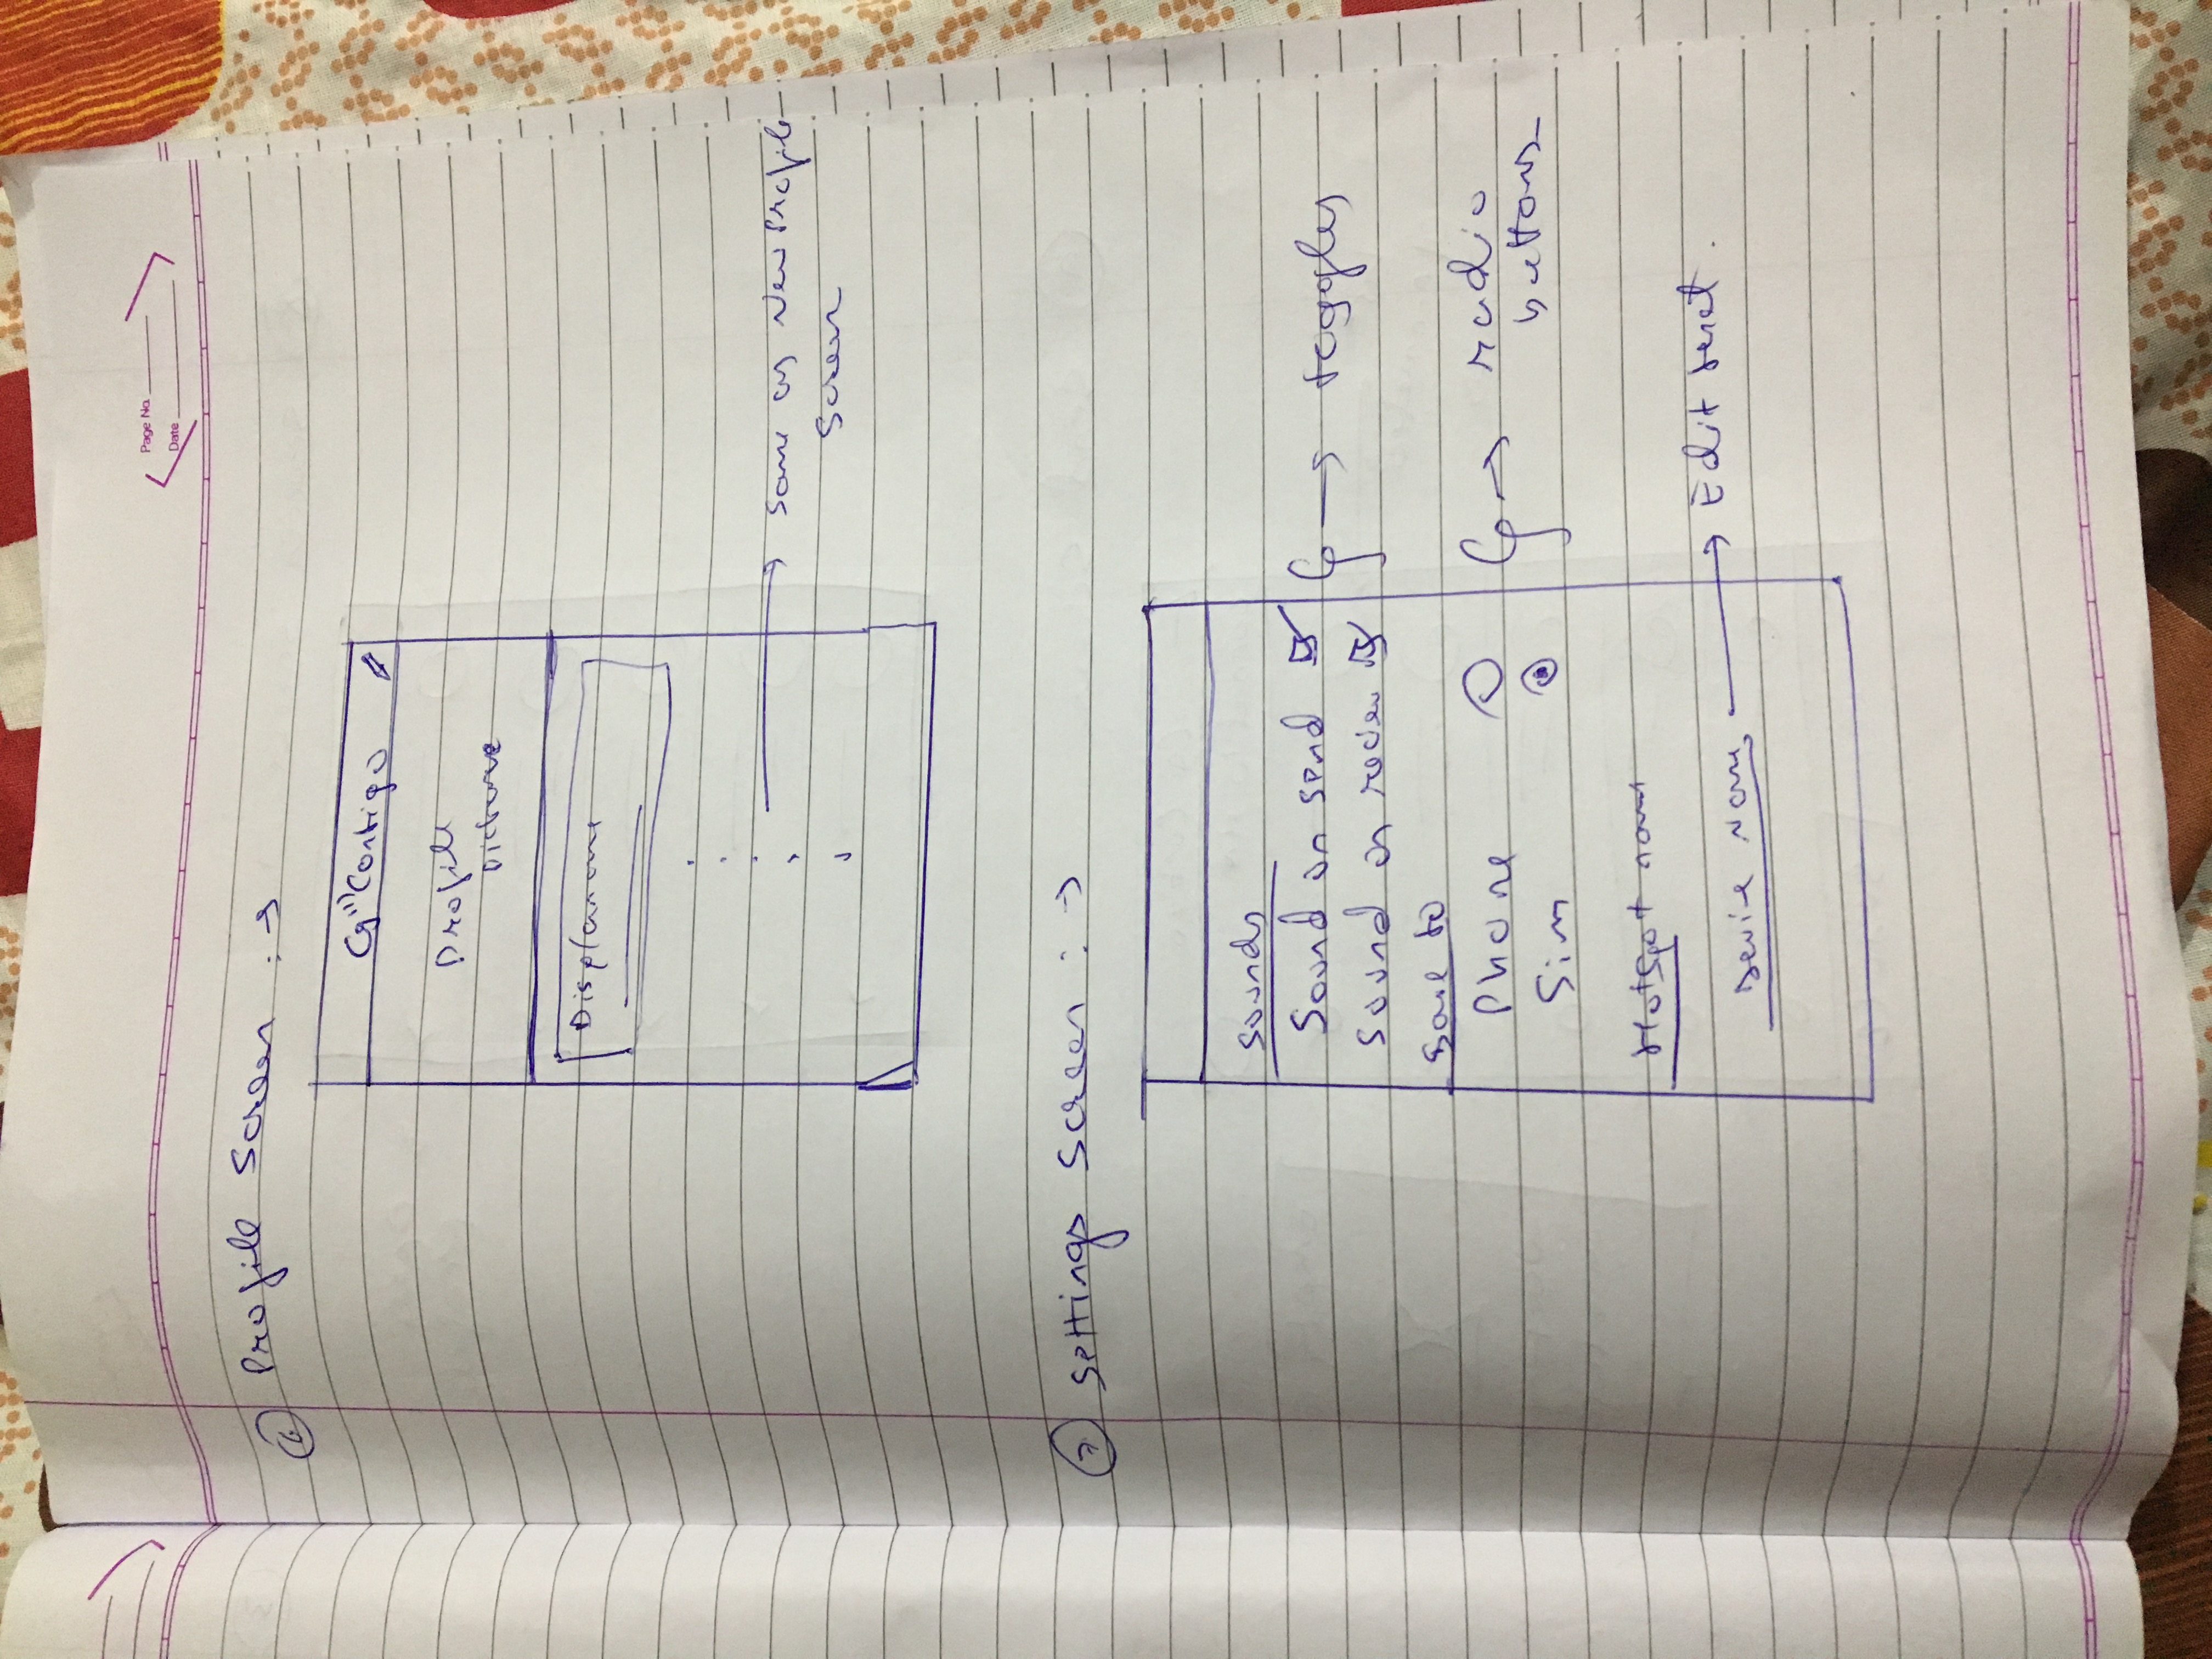 Page No.
Date
6 Profile Screen : →
Contigo
Profile
Picture
Displayname
→ Same as New Profile
Screen
7 Settings Screen : →
Sounds
Sound on send → toggles
Sound on reciev
Save to
Phone → radio
buttons
Sim
Hotspot name
Device Name → Edit text.